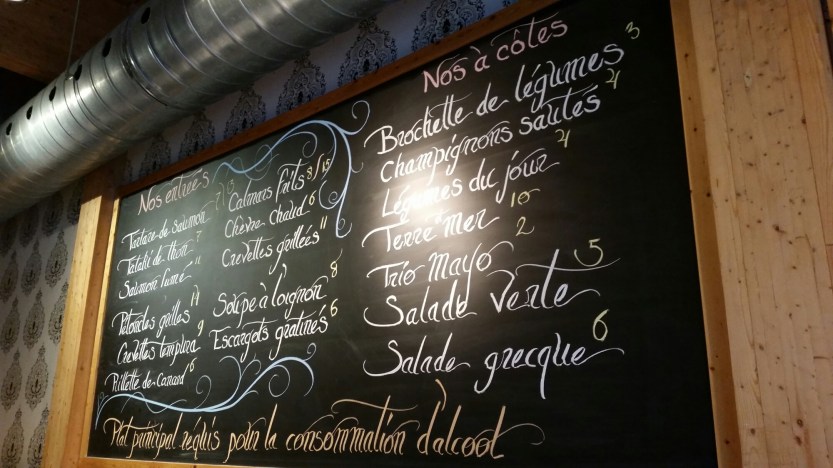 Nos entrées
Tartare de saumon 7/13
Tataki de thon 7
Saumon fumé 11
Pétoncles grillés 11
Crevettes tempura 9
Rillette de canard 6
Calmars frits 8/15
Chèvre chaud 6
Crevettes grillées 11
Soupe à l'oignon 8
Escargots gratinés 6
Nos à côtés
Brochette de légumes 3
Champignons sautés 4
Légumes du jour 4
Terre mer 10
Trio Mayo 2
Salade verte 5
Salade grecque 6
Plat principal requis pour la consommation d'alcool